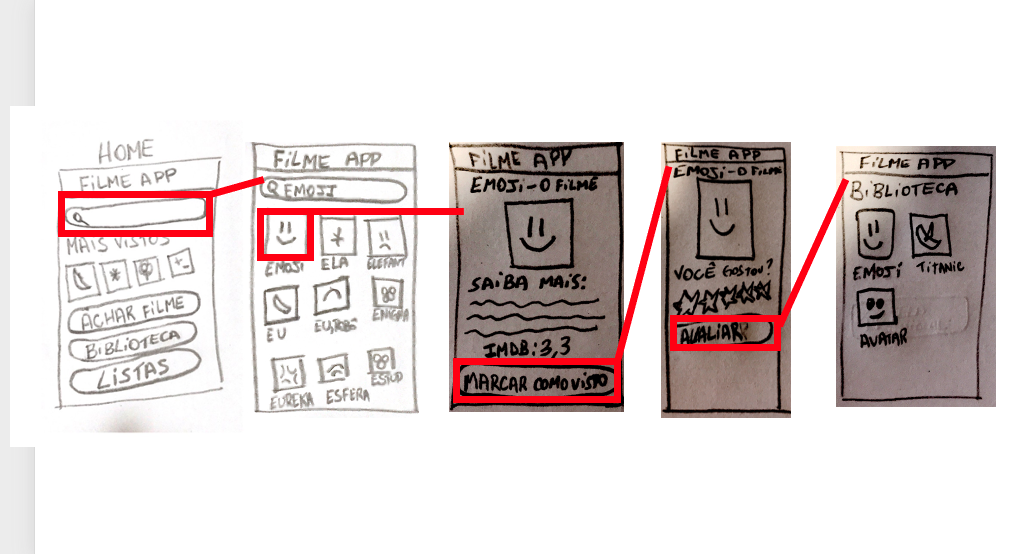 HOME
FiLME APP
MAIS VISTOS
ACHAR FiLME
BiBLIOTECA
LiSTAS
FiLME APP
EMOJI
EMOJI
ELA
ELEFANT
EU
EU,ROBÔ
ENIGMA
EUREKA
ESFERA
ESTUD
FiLME APP
EMOJi-O FiLME
SAiBA MAiS:
IMDB:3,3
MARCAR COMO VISTO
FiLME APP
EMOJI-O FiLME
VOCÊ GOSTOU?
AVALIAR
FiLME APP
BiBLiOTECA
EMOJi
TiTANIC
AVATAR